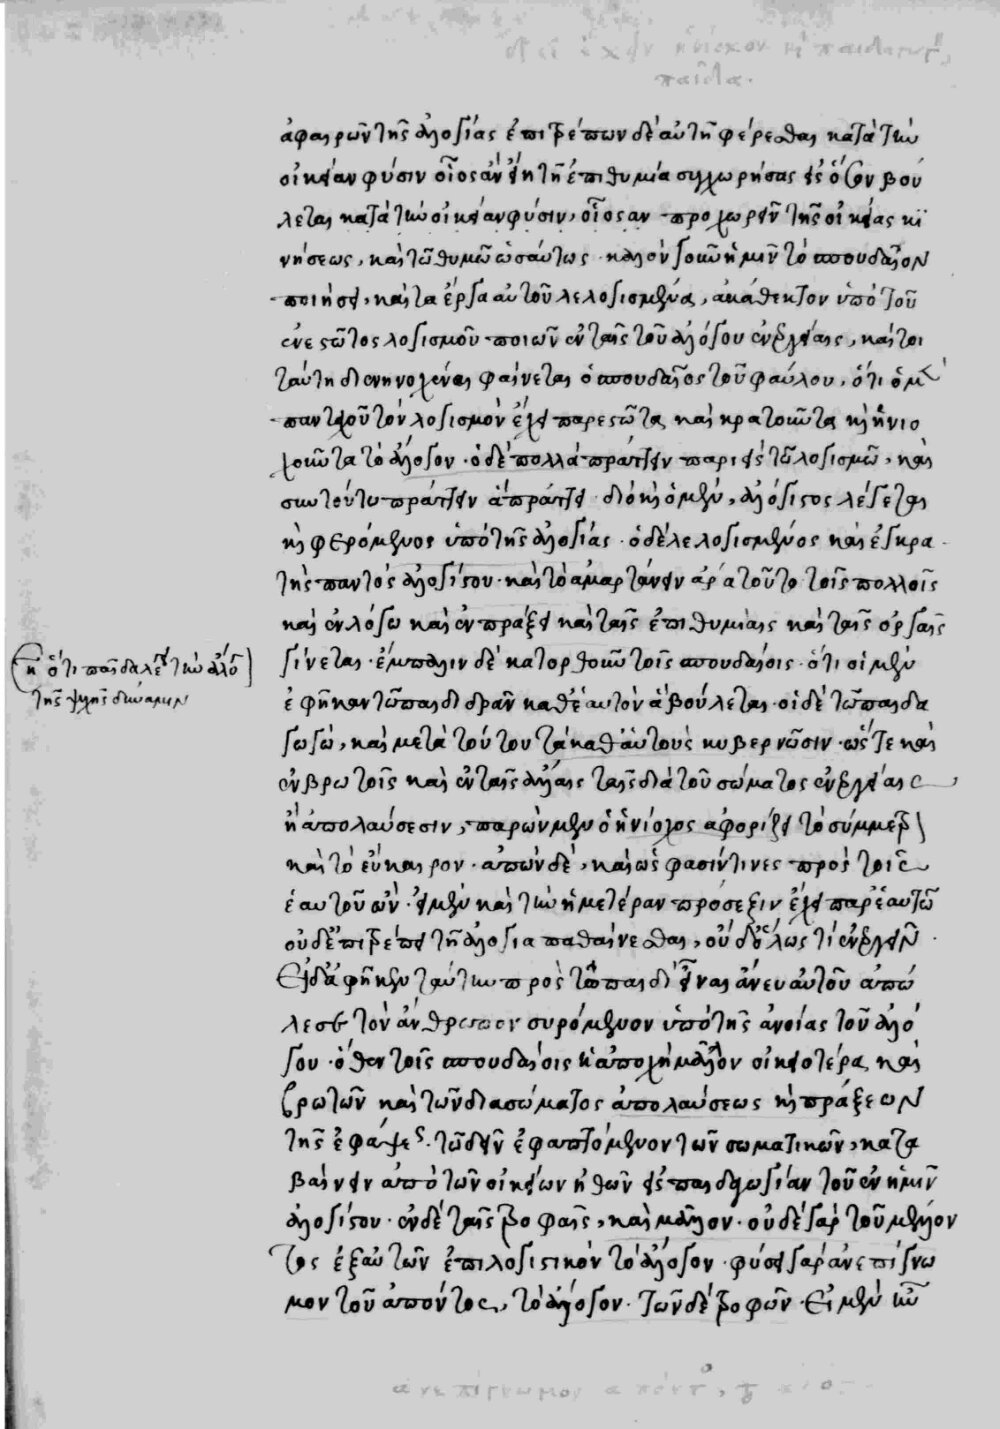 δεῖ ἔχειν ἡνίοχον ἢ παιδαγωγ
παῖδα.
ἀφαιρῶν τῆς ἀλογίας ἐπιτρέπων δὲ αὐτῇ φέρεσθαι κατὰ τὴν
οἰκείαν φύσιν οἷος ἂν ᾖ τῇ ἐπιθυμία συγχωρήσας εἰς ὅσον βού
λεται κατὰ τὴν οἰκείαν φύσιν, οἷος ἂν προχωρεῖν τῆς οἰκείας κι
νήσεως, καὶ τῷ θυμῷ ὡσαύτως. κάλλιον γοῦν ἡμῖν τὸ σπουδαῖον
ποιήσει, καὶ τὰ ἔργα αὐτοῦ λελογισμένα, ἀκάθεκτον ὑπὸ τοῦ
ἐνεστῶτος λογισμοῦ ποιῶν ἐν ταῖς τοῦ ἀλόγου ἐνεργείαις, καίτοι
ταύτη διενηνοχέναι φαίνεται ὁ σπουδαῖος τοῦ φαύλου, ὅτι ὁ μὲν
πανταχοῦ τὸν λογισμὸν ἔχει παρεστῶτα καὶ κρατοῦντα κ ἡνιο
χοῦντα τὸ ἄλογον. ὁ δὲ πολλὰ πράττειν παριεὶς τῷ λογισμῷ, καὶ
σὺν τούτω πράττειν ἃ πράττει. διὸ κ ὁ μὲν, ἀλόγιστος λέγεται
κ φερόμενος ὑπὸ τῆς ἀλογίας. ὁ δὲ λελογισμένος καὶ ἐγκρα
τὴς παντὸς ἀλογίστου. καὶ τὸ ἁμαρτάνειν ἄρα τοῦτο τοῖς πολλοῖς
καὶ ἐν λόγω καὶ ἐν πράξει καὶ ταῖς ἐπιθυμίαις καὶ ταῖς ὀργαῖς
γίνεται. ἔμπαλιν δὲ κατορθοῦν τοῖς σπουδαίοις. ὅτι οἱ μὲν
ἐφῆκαν τῷ παιδὶ δρᾶν καθ' ἑαυτὸν ἃ βούλεται. οἱ δὲ τῷ παιδα
γωγῷ, καὶ μετὰ τούτου τὰ καθ' αὑτοὺς κυβερνῶσιν. ὥστε καὶ
ἐν βρωτοῖς καὶ ἐν ταῖς ἄλλαις ταῖς διὰ τοῦ σώματος ἐνεργείαις
ἢ ἀπολαύσεσιν, παρὼν μὲν ὁ ἡνίοχος ἀφορίζει τὸ σύμμετρ
καὶ τὸ εὔκαιρον. ἀπὼν δὲ, καὶ ὥς φασίν τινες πρὸς τοῖς
ἑαυτοῦ ὤν. εἰ μὲν καὶ τὴν ἡμετέραν πρόσεξιν ἔχει παρ' ἑαυτῶ
οὐδ' ἐπιτρέπει τῇ ἀλογία παθαίνεσθαι, οὐδ' ὅλως τί ἐνεργεῖν.
Εἰ δ' ἀφῆκεν ταύτην πρὸς τῷ παιδὶ εἶναι ἄνευ αὐτοῦ ἀπώ
λεσε τὸν ἄνθρωπον συρόμενον ὑπὸ τῆς ἀνοίας τοῦ ἀλό
γου. ὅθεν τοῖς σπουδαίοις ἡ ἀποχὴ μᾶλλον οἰκειοτέρα καὶ
βρωτῶν καὶ τῶν διὰ σώματος ἀπολαύσεως κ πράξεων
τῆς ἐφάψεως. τῷ δεῖν ἐφαπτόμενον τῶν σωματικῶν, κατα
βαίνειν ἀπὸ τῶν οἰκείων ἠθῶν εἰς παιδαγωγίαν τοῦ ἐν ἡμῖν
ἀλογίστου. ἐν δὲ ταῖς τροφαῖς, καὶ μᾶλλον. οὐδὲ γὰρ τοῦ μέλλον
τος ἐξ αὐτῶν ἐπιλογιστικὸν τὸ ἄλογον. φύσει γὰρ ἀνεπίγνω
μον τοῦ ἀπόντος, τὸ ἄλογον. τῶν δὲ τροφῶν. Εἰ μὲν ἦν
ὅτι παιδαγωγεῖ τὴν ἄλογ
τῆς ψυχῆς δύναμιν
ἀνεπίγνωμον ἀπόντ, τ